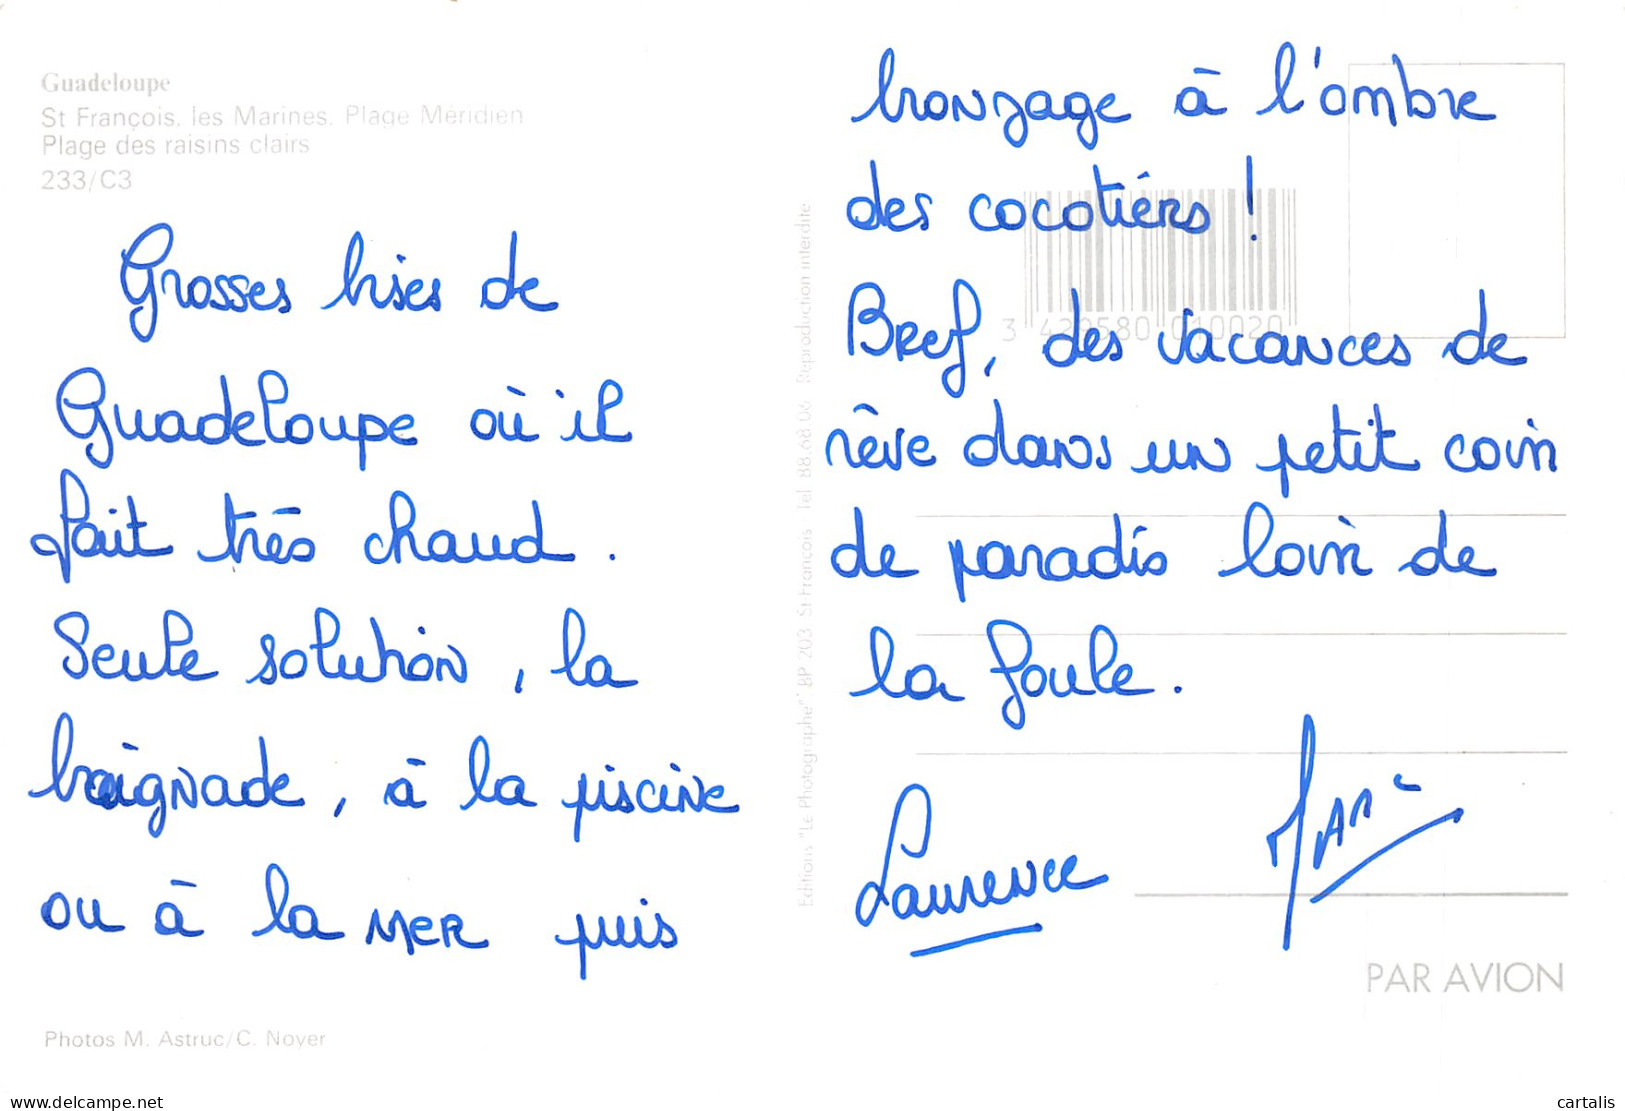 Guadeloupe
St François. les Marines. Plage Méridien
Plage des raisins clairs
233/C3
Grosses bises de
Guadeloupe où il
fait très chaud.
Seule solution, la
baignade, à la piscine
ou à la mer puis
Photos M. Astruc/C. Noyer
Editions "Le Photographe". BP 203 St François Tel. 88.68.06 Reproduction interdite
bronzage à l'ombre
des cocotiers !
3 429580 010020
Bref, des vacances de
rêve dans un petit coin
de paradis loin de
la foule.
Laurence
PAR AVION
www.delcampe.net
cartalis